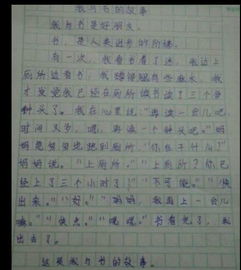 我与书的故事
我与书是好朋友。
书，是人类进步的阶梯。
有一次，我看书看了迷，我边上
厕所边看书，我蹲得腿都麻了，我
才发觉我已经在厕所读书读了三个多
种头了。我在心里说："再读一会儿吧，
时间又多，嗯，再读一个钟头吧。"妈
妈急匆匆地把到厕所，"你在干什么？"
妈妈说。"上厕所。""上厕所？你已
经上了三个小时了！""不可能。""快
出来。""好。""妈妈，我再上一会儿
嘛。""快点。""嗯嗯。"书看完了，我
出去了。
这是我与书的故事。